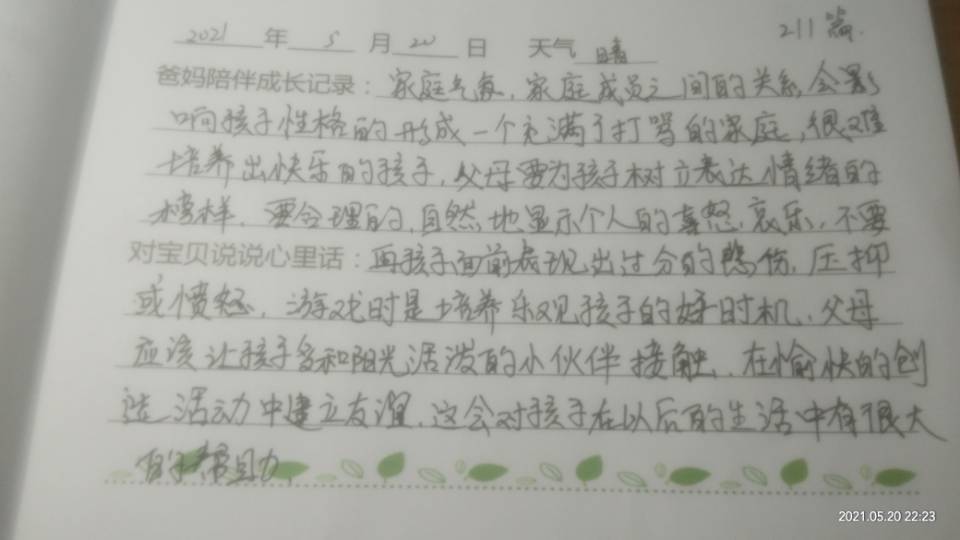 211篇.
2021 年 5 月 20 日 天气 晴
爸妈陪伴成长记录：家庭气象，家庭成员之间的关系，会影
响孩子性格的形成一个充满了打骂的家庭，很难
培养出快乐的孩子，父母要为孩子树立表达情绪的
榜样，要合理的，自然地显示个人的喜怒.哀乐，不要
对宝贝说说心里话：再孩子面前表现出过分的悲伤，压抑
或愤怒，游戏时是培养乐观孩子的好时机，父母
应该让孩子多和阳光活泼的小伙伴接触，在愉快的创
造活动中建立友谊，这会对孩子在以后的生活中有很大
的帮助
2021.05.20 22:23